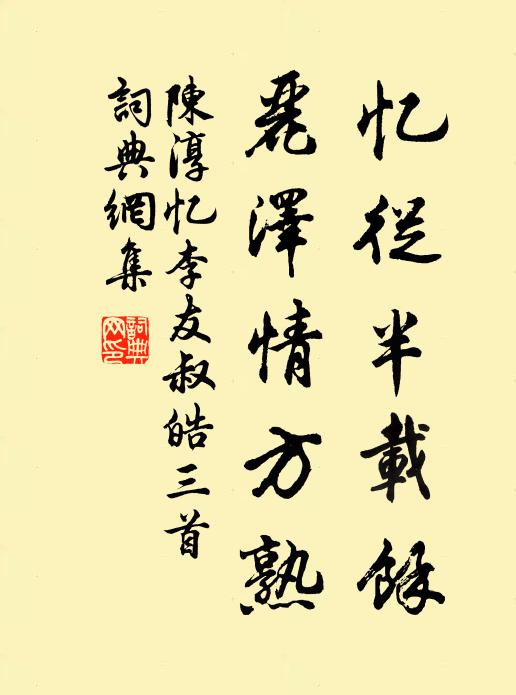 忆從半載餘
麗澤情方熟
陳淳忆李友叔皓三首
詞典網集
詞典网印